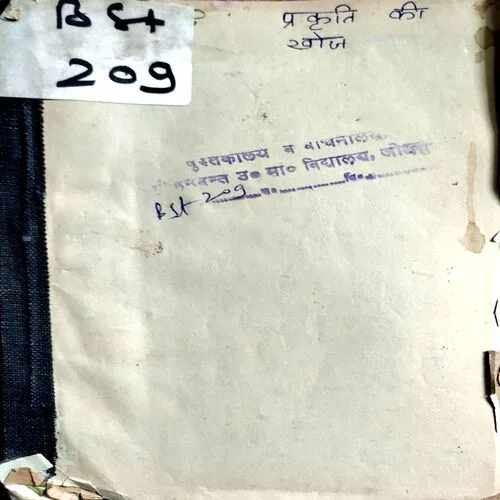 BSt
209
प्रकृति की
खोज
पुस्तकालय व वाचनालय,
उ० मा० विद्यालय,
BSt 209